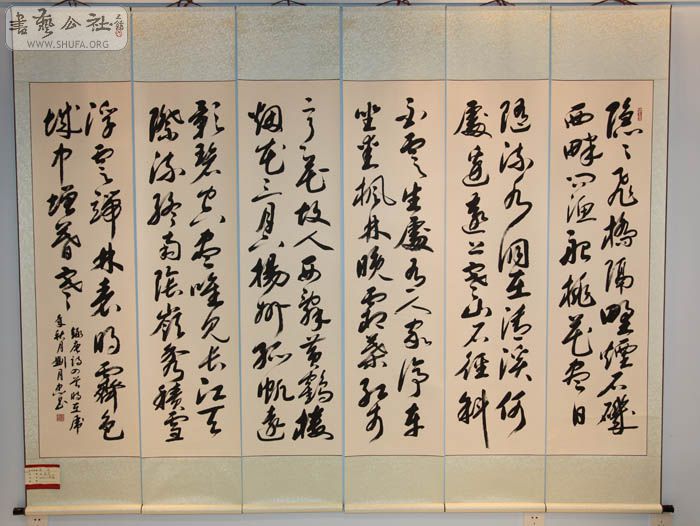 書藝公社
WWW.SHUFA.ORG
隐隐飛橋隔野煙石磯
西畔问渔船桃花盡日
随流水洞在清溪何
處邊遠上寒山石徑斜
白雲生處有人家停車
坐愛楓林晚霜葉红於
二月花故人西辞黄鶴樓
烟花三月下揚州孤帆遠
影碧空盡唯见长江天
際流終南陰嶺秀積雪
浮雲端林表明霽色
城中增暮寒
録唐詩四首時在虎
年秋月劉月